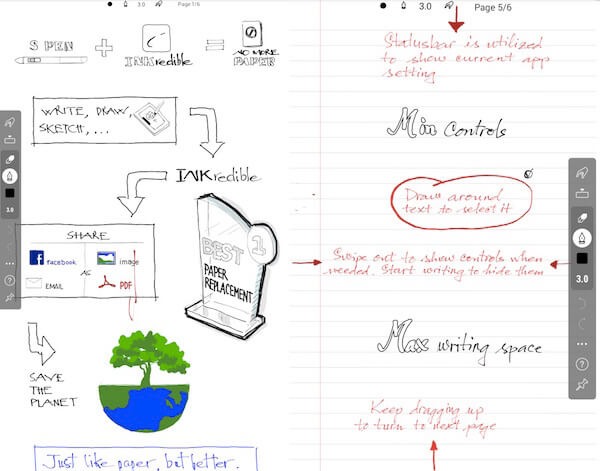 3.0
Page 1/6
S PEN
INKredible
NO MORE
PAPER
WRITE, DRAW,
SKETCH, ...
INKredible
SHARE
facebook
image
AS
EMAIL
PDF
BEST
1
PAPER
REPLACEMENT
SAVE
THE
PLANET
Just like paper, but better.
3.0
3.0
Page 5/6
Statusbar is utilized
to show current app
setting
Min controls
Draw around
text to select it
Swipe out to show controls when
needed. Start writing to hide them
Max writing space
Keep dragging up
to turn to next page
3.0